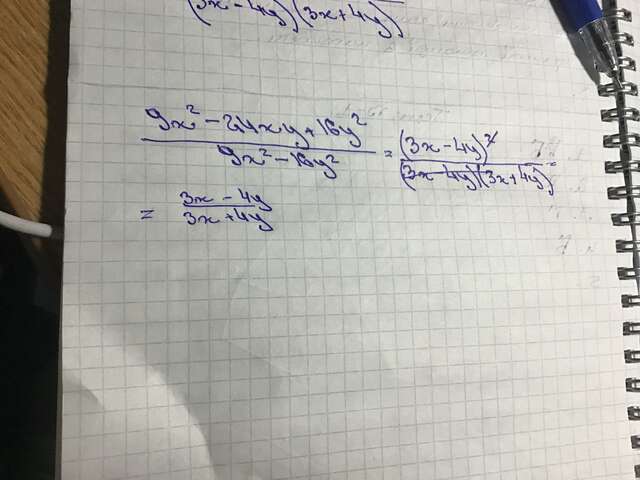 (3x-4y)(3x+4y)
9x² - 24xy + 16y² / 9x² - 16y² = (3x-4y)² / (3x-4y)(3x+4y) =
= 3x - 4y / 3x + 4y